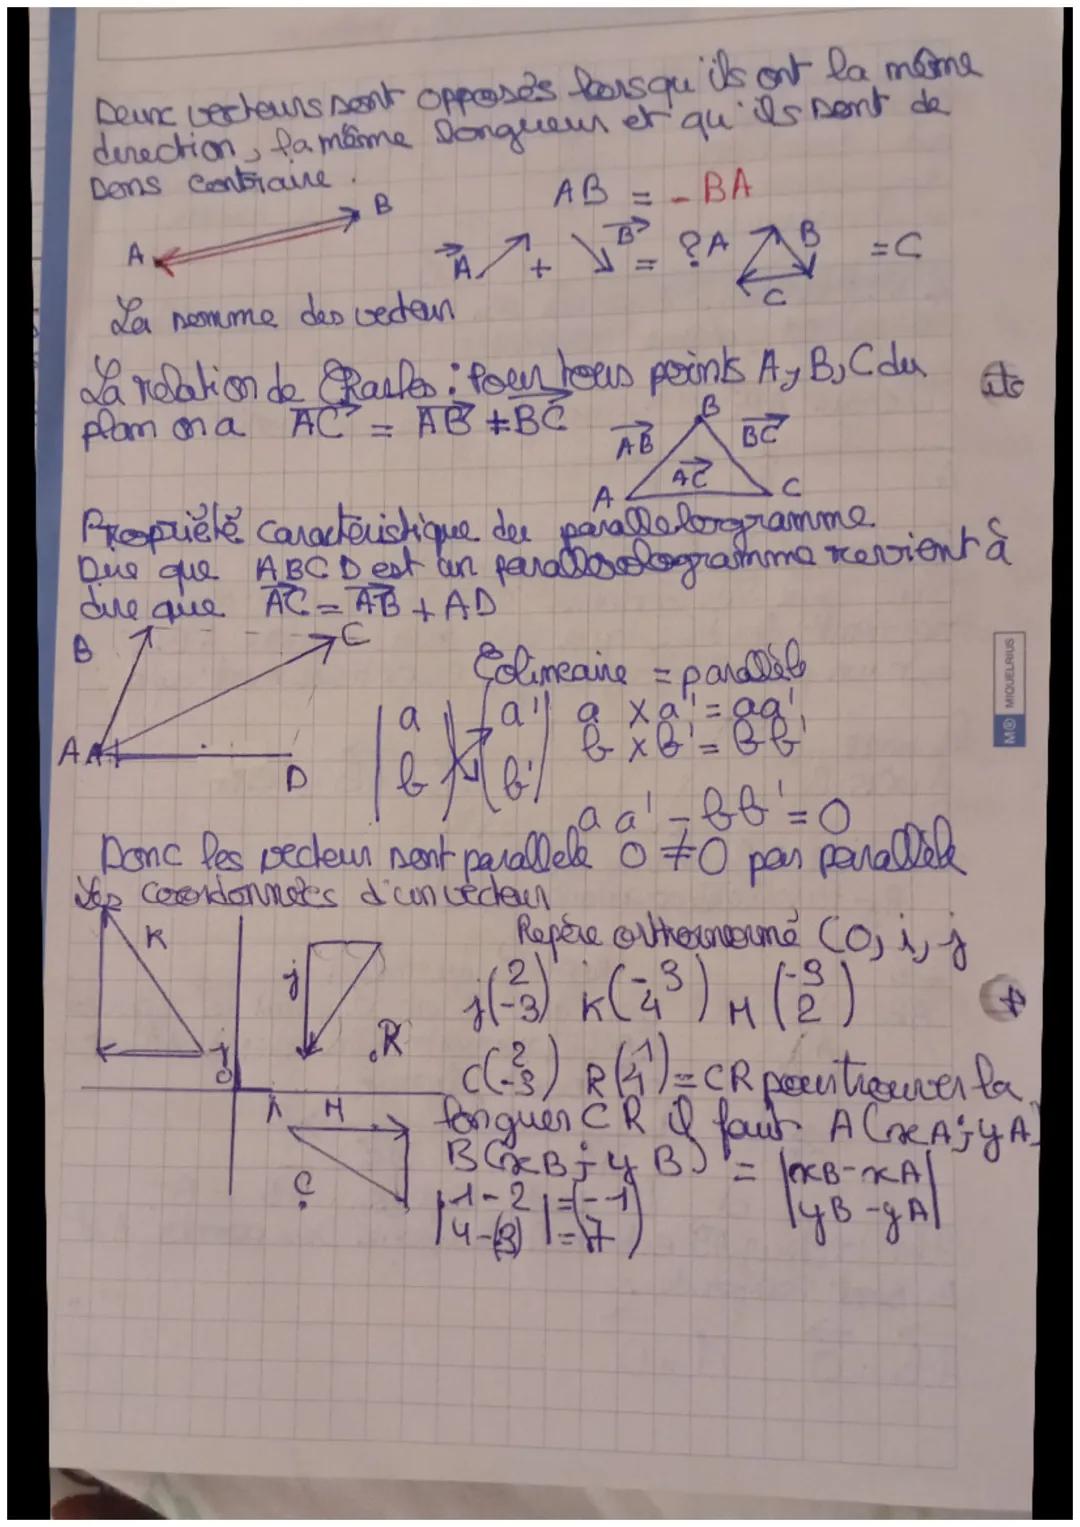 Deux vecteurs sont opposés lorsqu'ils ont la même
direction, la même longueur et qu'ils sont de
sens contraire.
AB = -BA
A B
A + B = ? A B C = C
La somme des vecteur
La relation de Chasles : Pour tous points A, B, C du
plan on a AC = AB + BC
AB B BC
AC
A C
Propriété caractéristique du parallelorgramme
Dire que ABCD est un parallologramme revient à
dire que AC = AB + AD
B C
A D
Colineaire = parallèle
a a' a x a' = aa'
b b' b x b' = bb'
aa' - bb' = 0
Donc les vecteur sont parallele 0 ≠ 0 pas parallèle
Les coordonnées d'un vecteur
Repère orthonormé (O, i, j
K j R
j(2 -3) K(-3 4) M(-3 2)
C(2 -3) R(1 4) = CR pour trouver la
longuer CR il faut A(xA; yA)
B(xB; yB) = |xB-xA yB-yA|
|1-2 4-(3)| = (-1 = 7)
O
M
C
MIQUELRIUS